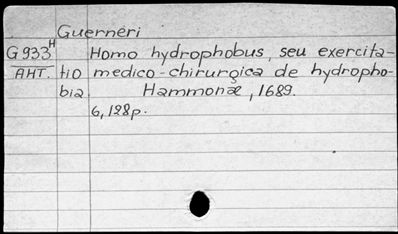 Guerneri
G933H Homo hydrophobus, seu exercita-
AHT. tio medico-chirurgica de hydropho-
bia. Hammonæ, 1689.
6,128p.